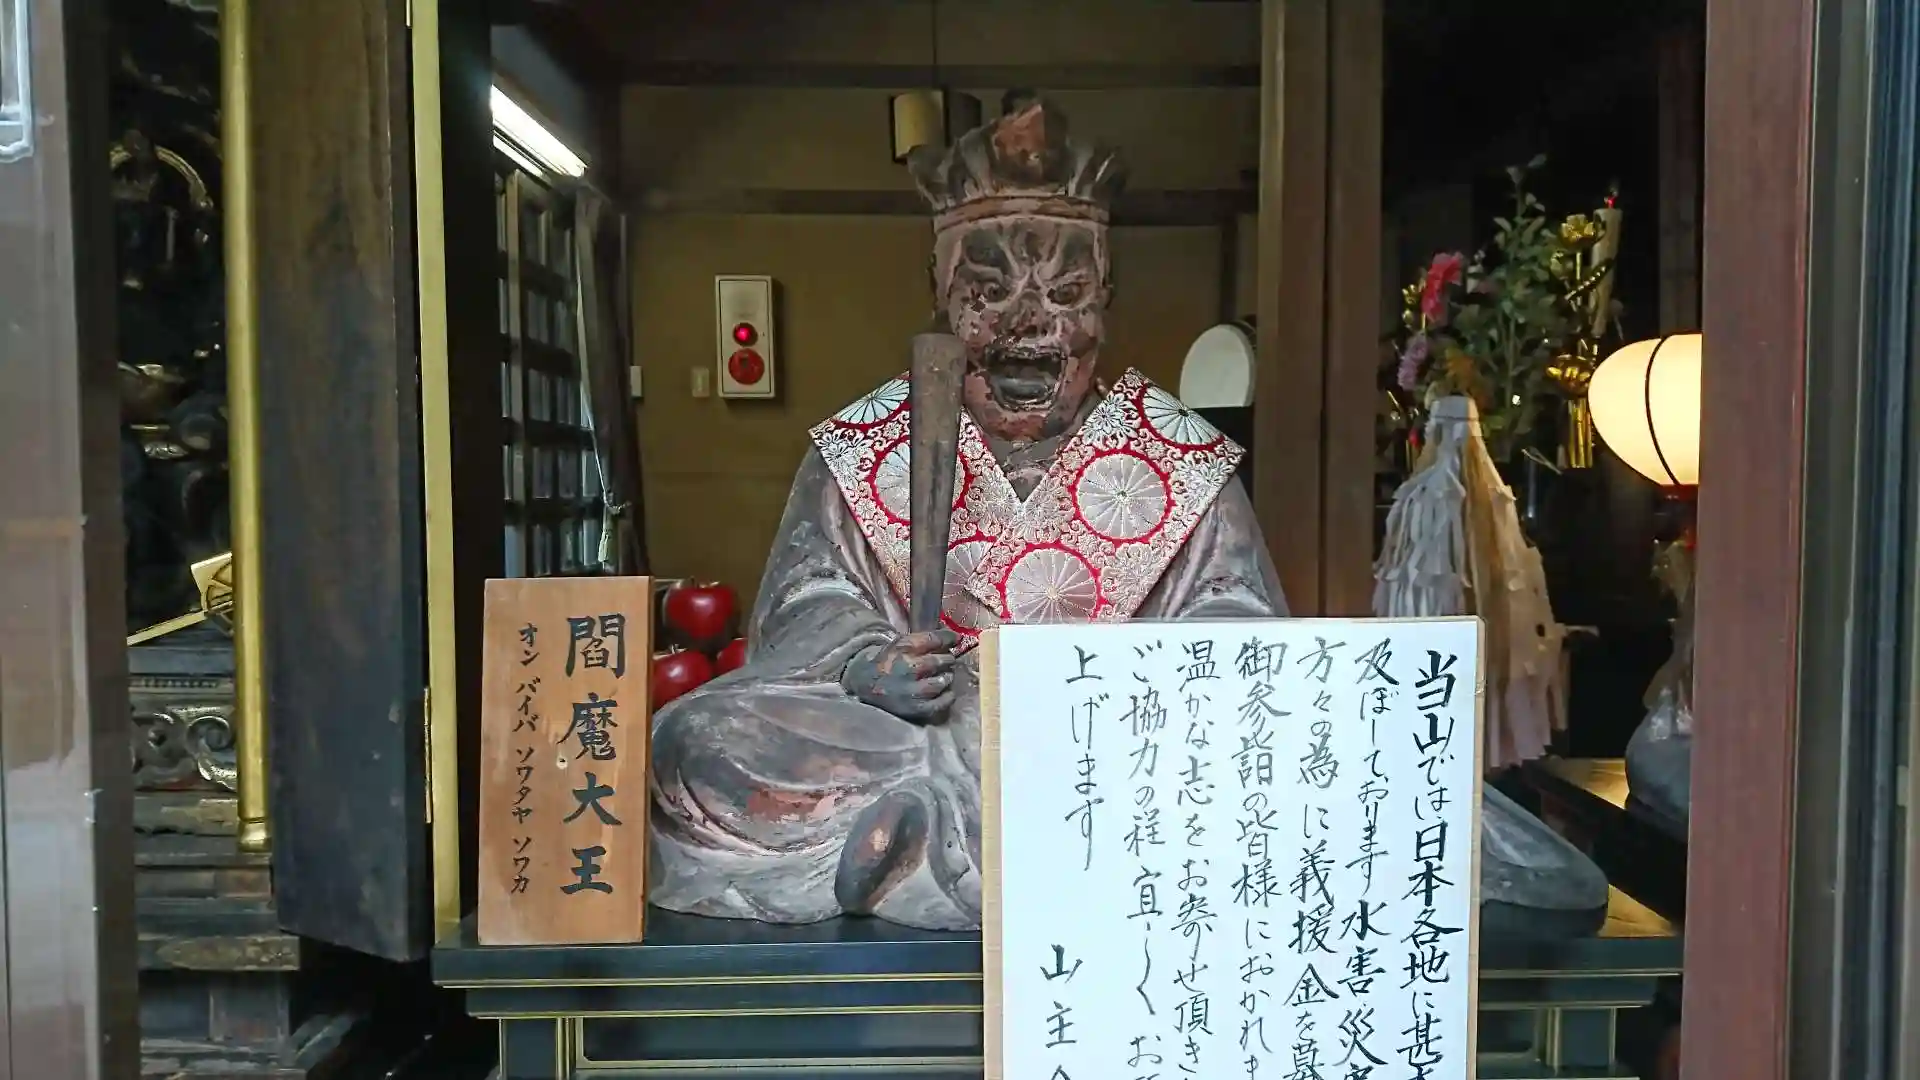 閻魔大王
オン バイバ ソワタヤ ソワカ
当山では日本各地に甚
及ぼしております水害、災害
方々の為に義援金を募
御参詣の皆様におかれま
温かな志をお寄せ頂き
ご協力の程宜しくお
上げます
山主